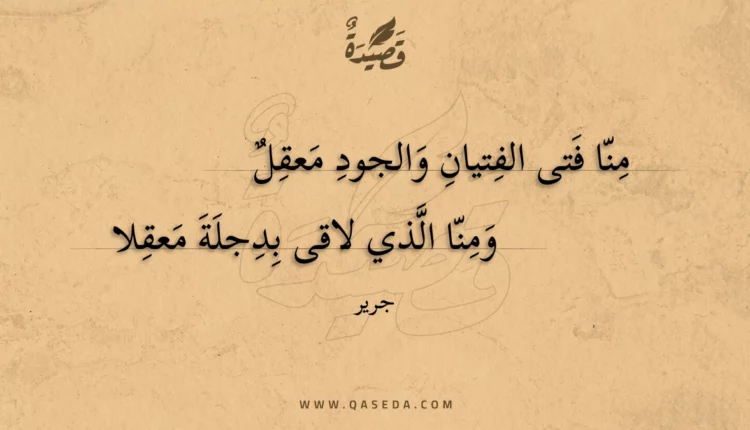 قَصِيْدَةٌ
مِنّا فَتى الفِتيانِ وَالجودِ مَعقِلٌ
وَمِنّا الَّذي لاقى بِدِجلَةَ مَعقِلا
جرير
WWW.QASEDA.COM